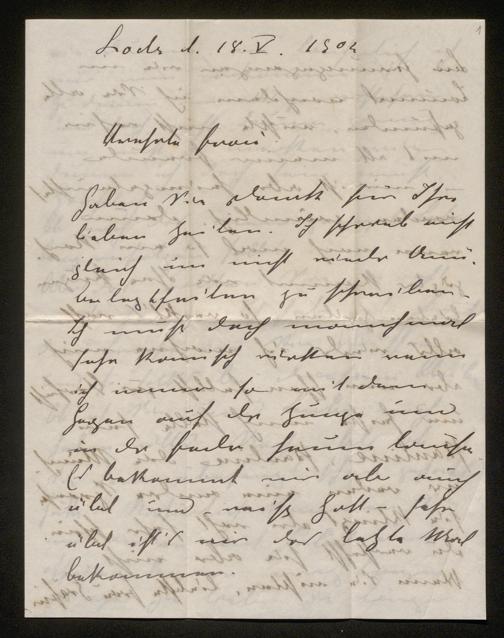 Lodz d. 18. V. 1902
Verehrte Frau!
Haben Sie Dank für Ihre
lieben Zeilen. Ich schrieb nicht
gleich um nicht wieder
zu schreiben.
Ich muß doch manchmal
sehr komisch wirken wenn
ich immer so mit dem
Herzen auf der Zunge und
in der Feder herum laufe.
Es bekommt mir aber auch
übel und – weiß Gott – sehr
übel ist's mir das letzte Mal
bekommen.